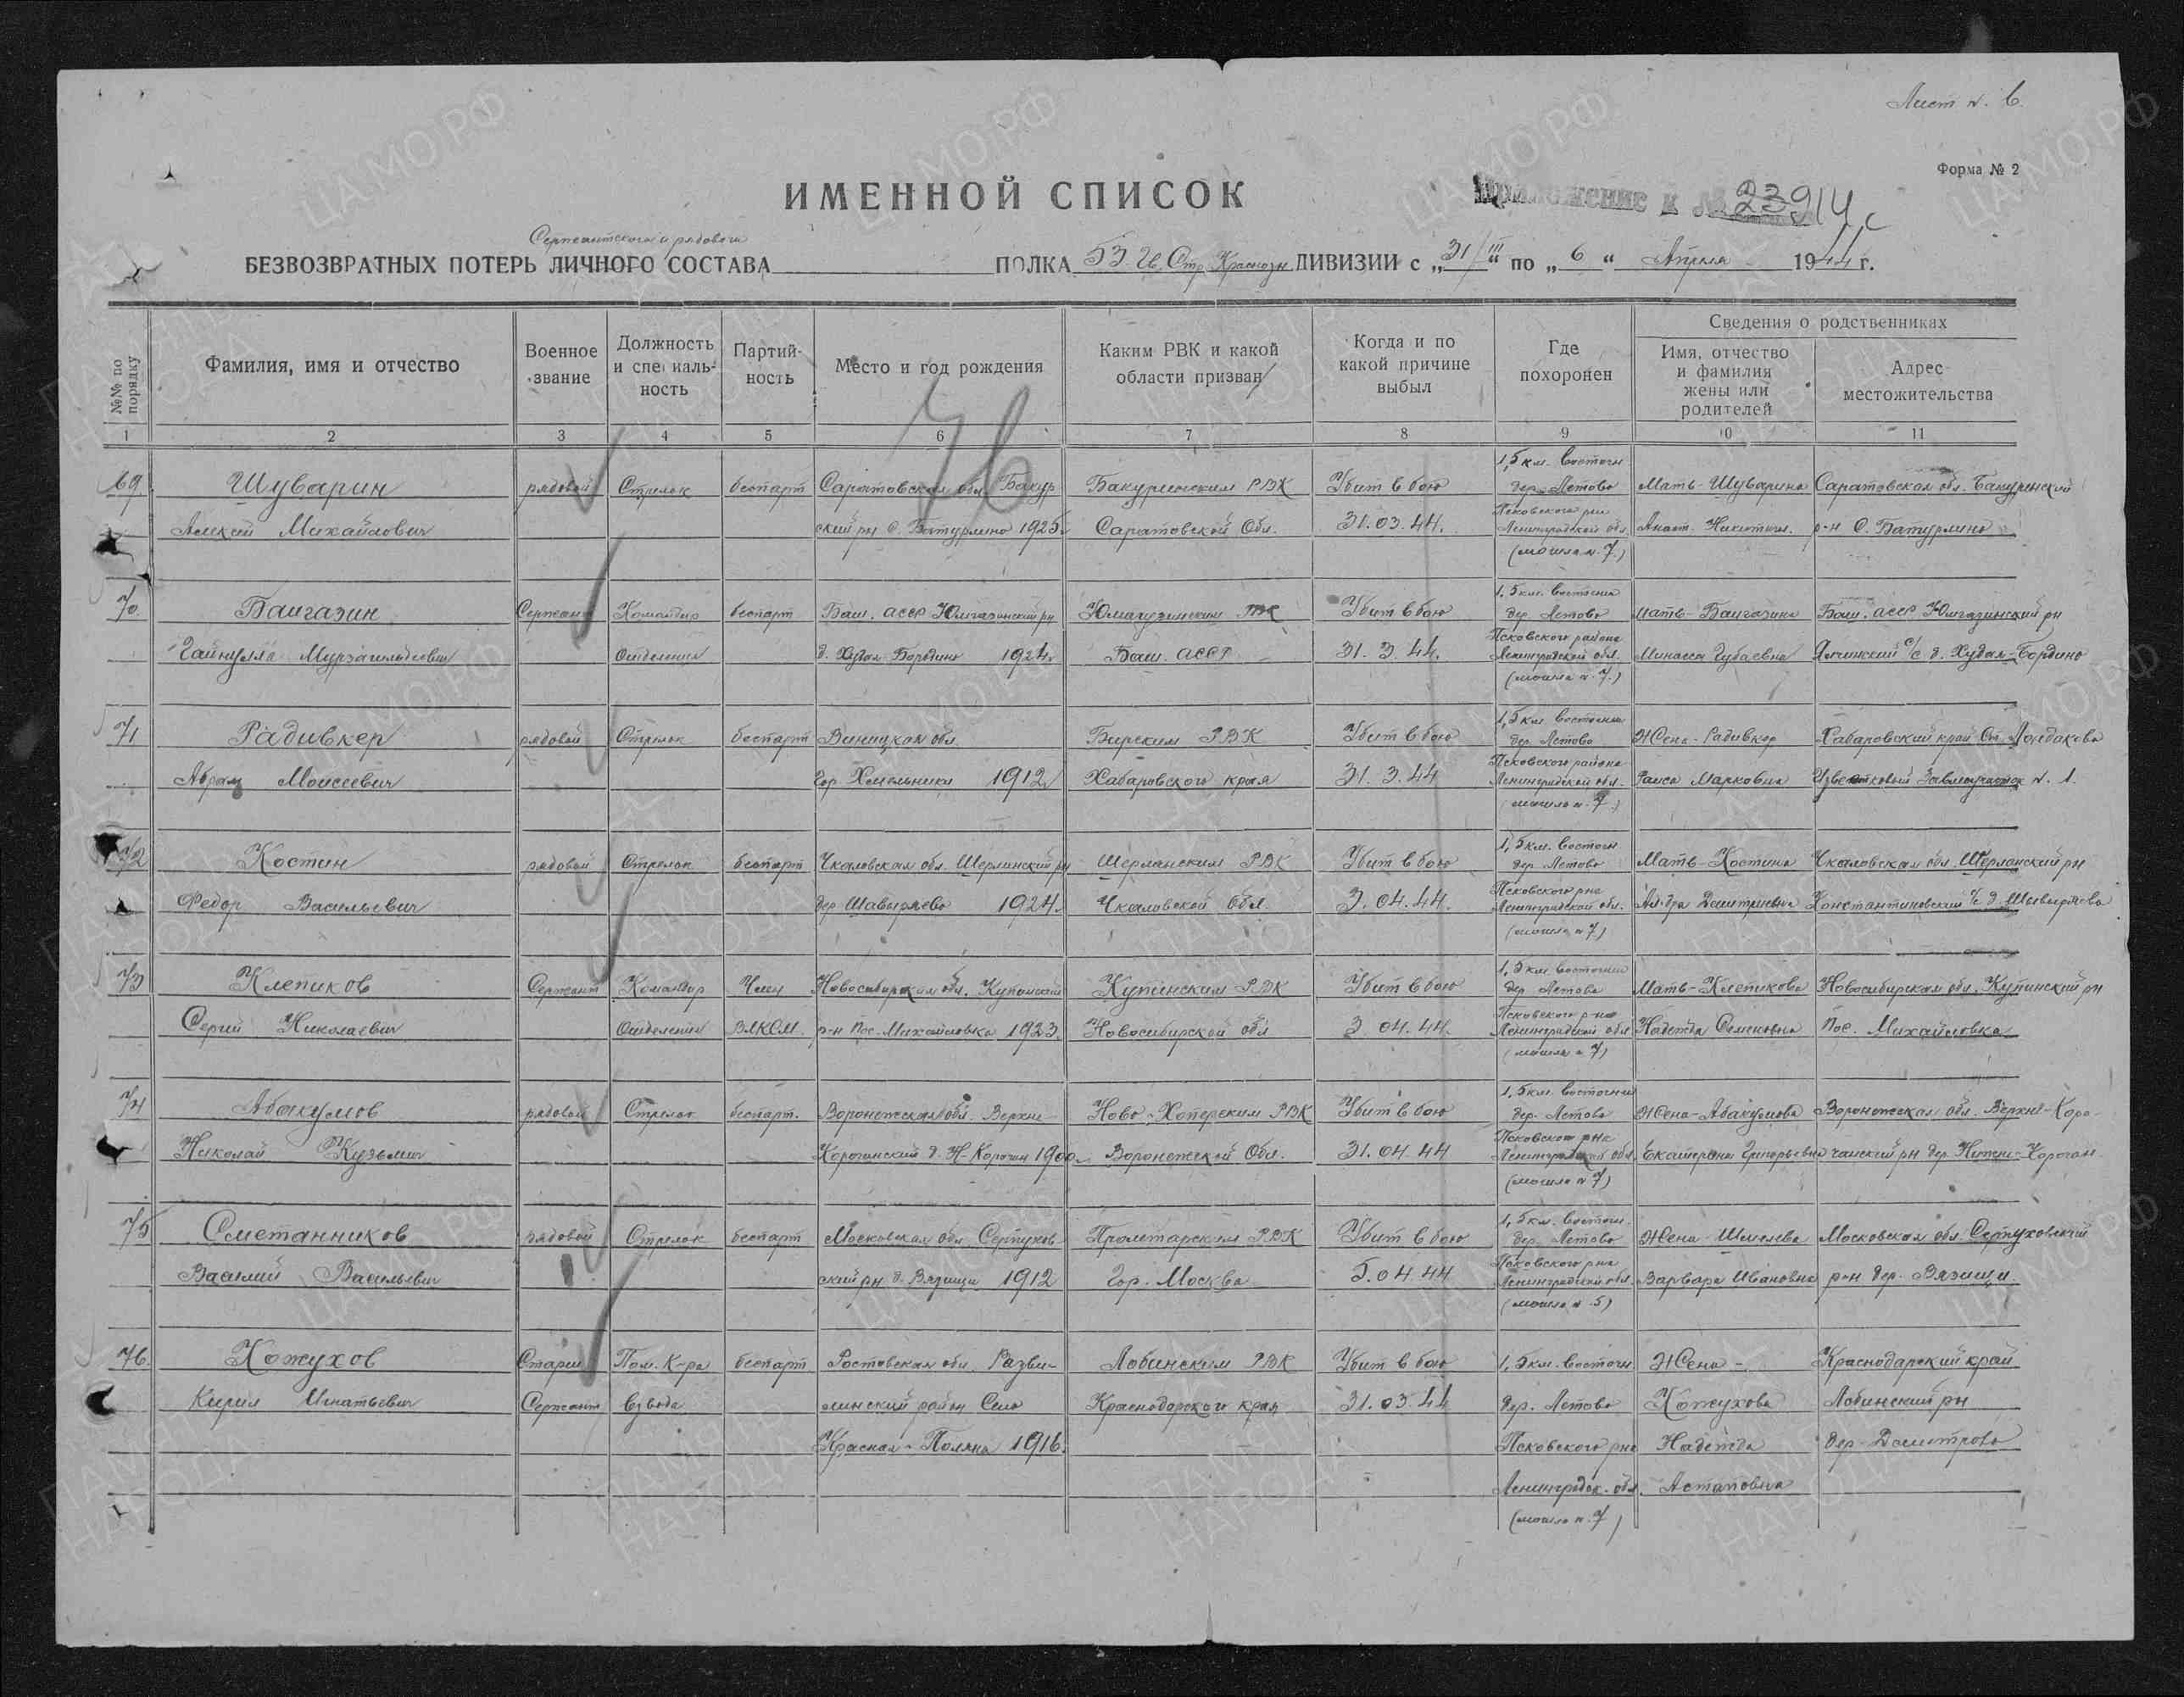 Лист №. 6.
Форма № 2
ИМЕННОЙ СПИСОК
Приложение к № 23914с
Сержантского и рядового
БЕЗВОЗВРАТНЫХ ПОТЕРЬ ЛИЧНОГО СОСТАВА ПОЛКА 53 Гв. Стр. Краснозн ДИВИЗИИ с „31/III“ по „6“ Апреля 1944 г.
№№ по порядку
Фамилия, имя и отчество
Военное звание
Должность и специальность
Партийность
Место и год рождения
Каким РВК и какой области призван
Когда и по какой причине выбыл
Где похоронен
Сведения о родственниках
Имя, отчество и фамилия жены или родителей
Адрес местожительства
1 2 3 4 5 6 7 8 9 10 11
76
69 Шуварин рядовой Стрелок беспарт Саратовская обл. Бакур Бакуринским РВК Убит в бою 1,5 км. Восточн дер. Летово Мать-Шуварина Саратовская обл. Бакуринский
Алексей Михайлович ский рн с. Батурлино 1925. Саратовской Обл. 31.03.44. Псковского рна Ленинградской обл. Анаст. Никитич. р-н С. Батурлино
(могила №.7.)
70. Баигазин Сержант Командир беспарт Баш. АССР Юмагазинский рн Юмагузинским РВК Убит в бою 1,5 км. Восточнее дер. Летово Мать-Баигазина Баш. АССР Юмгазинский рн
Гайнулла Мурзагильдеевич Отделения д. Худай-Бордино 1924. Баш. АССР 31.3.44. Псковского района Ленинградской обл. Минасса Губаевна Ялчинский с/с д. Худай-Бордино
(могила №.7.)
71 Радивкер рядовой Стрелок беспарт Виницкая обл. Бирским РВК Убит в бою 1,5 км Восточнее дер. Летово Жена-Радивкер Хабаровский край Ст. Лондоково
Абрам Моисеевич Гор. Хмельники 1912. Хабаровского края 31.3.44 Псковского района Ленинградской обл. Раиса Марковна Известковый №. 1.
(могила №.7.)
72 Костин рядовой Стрелок беспарт Чкаловская обл. Шерлинский рн Шерланским РВК Убит в бою 1,5 км. Восточн дер. Летово Мать-Костина Чкаловская обл. Шерланский рн
Федор Васильевич дер. Шавыряево 1924. Чкаловской Обл. 3.04.44. Псковского рна Ленинградской обл. Ал-дра Дмитриевна Константиновский с/с д. Шавыряева
(могила №7)
73 Клепиков Сержант Командир Член Новосибирская обл. Купинский Купинским РВК Убит в бою 1,5 км Восточнее дер. Летово Мать-Клепикова Новосибирская обл. Купинский рн
Сергий Николаевич Отделения ВЛКСМ. р-н Пос. Михайловка 1923. Новосибирской обл 3.04.44. Псковского р-на Ленинградской обл Надежда Семеновна Пос. Михайловка
(могила №7)
74 Абакумов рядовой Стрелок беспарт. Воронежская обл. Верхне Ново-Хоперским РВК Убит в бою 1,5 км. Восточнее дер. Летово Жена-Абакумова Воронежская обл. Верхне-Коро-
Николай Кузьмич Корочанский д. Н-Корочан 1900. Воронежской Обл. 31.04.44 Псковского рна Ленинградской обл. Екатерина Григорьевна чанский рн дер. Нижне-Корочан.
(могила №7)
75 Сметанников рядовой Стрелок беспарт Московская обл. Серпухов Пролетарским РВК Убит в бою 1,5 км. Восточн. дер. Летово Жена-Шмелева Московская обл. Серпуховский
Василий Васильевич ский рн д. Вязищи 1912 Гор. Москва 5.04.44 Псковского рна Ленинградской обл. Варвара Ивановна рон дер. Вязищи.
(могила №.5)
76. Кожухов Старш Пом. К-ра беспарт Ростовская обл. Разви- Лобинским РВК Убит в бою 1,5 км. Восточн Жена- Краснодарский край
Кирил Игнатьевич Сержант Взвода линский район Село Краснодарского края 31.03.44 дер. Летово Кожухова Лобинский рн
Красная-Поляна 1916. Псковского рна Надежда дер-Дмитрово
Ленинградск. обл. Астаповна
(могила №.7)